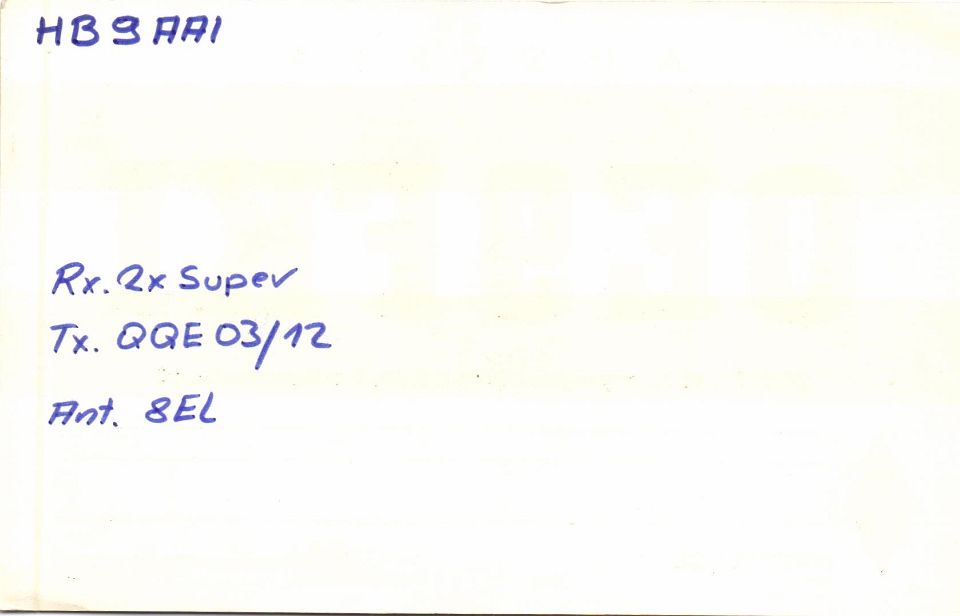 HB9AAI
Rx. 2x Super
Tx. QQE 03/12
Ant. 8EL